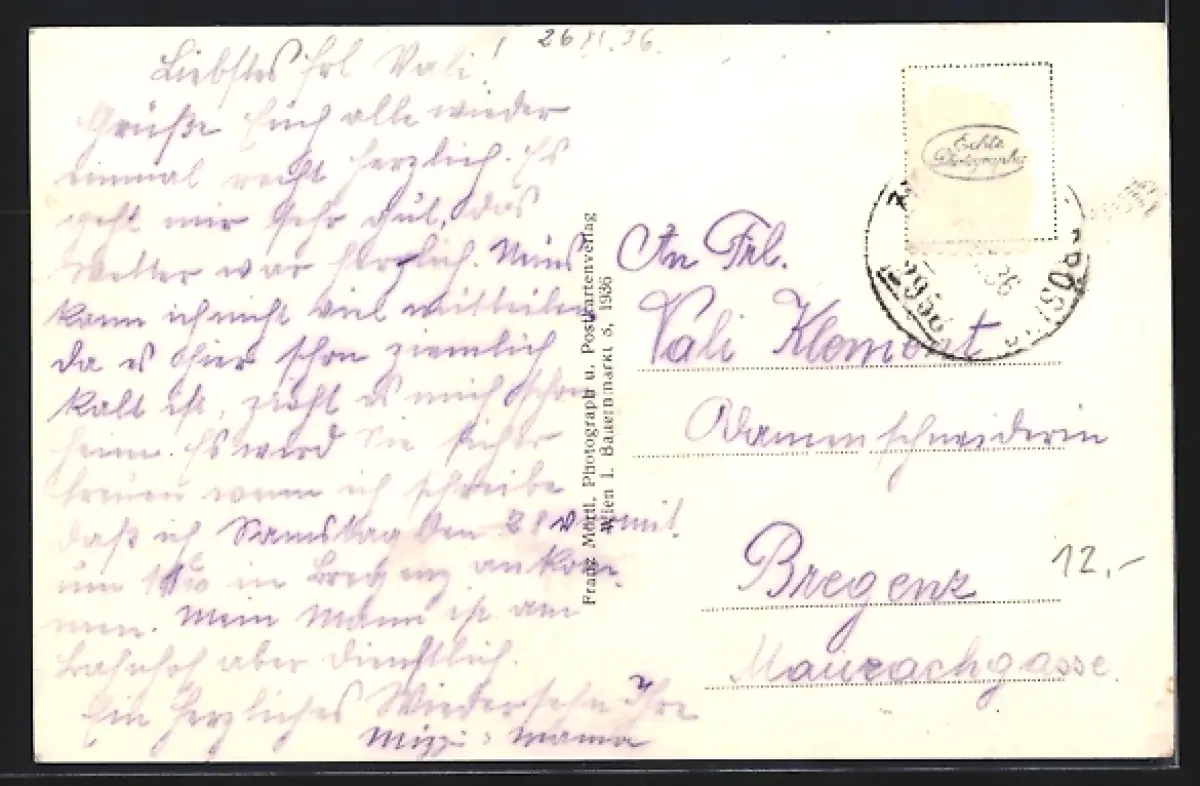 26 XI. 36.
Liebstes Frl Vali!
Grüße Euch alle wieder
einmal recht herzlich. Es
geht mir sehr gut, das
Wetter war herrlich.
kann ich nicht viel mitteilen
da es hier schon ziemlich
kalt ist, zieht es mich schon
heim. Es wird Sie sicher
freuen wenn ich schreibe
daß ich Samstag den 28 vormit.
um in Bregenz ankom-
men. Mein Mann ist am
Bahnhof aber dienstlich.
Ein herzliches Wiedersehn Ihre
Mizzi Mama
Franz Mörtl, Photograph u. Postkartenverlag
Wien I. Bauernmarkt 3, 1936
Echte
Photographie
36
An Frl.
Vali Klement
Damenschneiderin
Bregenz
Maurachgasse
12,-